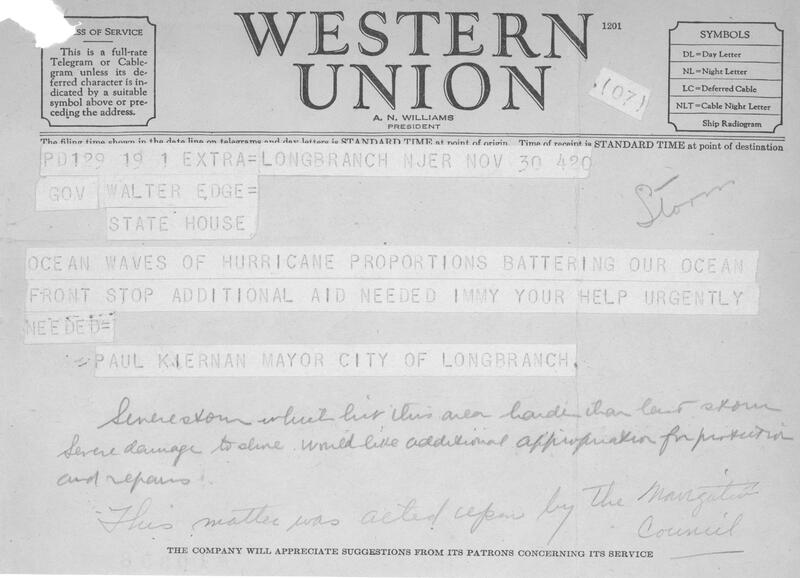 WESTERN
UNION
1201
A. N. WILLIAMS
PRESIDENT
SS OF SERVICE
This is a full-rate
Telegram or Cable-
gram unless its de-
ferred character is in-
dicated by a suitable
symbol above or pre-
ceding the address.
(07)
SYMBOLS
DL=Day Letter
NL=Night Letter
LC=Deferred Cable
NLT=Cable Night Letter
Ship Radiogram
The filing time shown in the date line on telegrams and day letters is STANDARD TIME at point of origin. Time of receipt is STANDARD TIME at point of destination
PD129 19 1 EXTRA=LONGBRANCH NJER NOV 30 420
GOV WALTER EDGE=
STATE HOUSE
Storm
OCEAN WAVES OF HURRICANE PROPORTIONS BATTERING OUR OCEAN
FRONT STOP ADDITIONAL AID NEEDED IMMY YOUR HELP URGENTLY
NEEDED=
=PAUL KIERNAN MAYOR CITY OF LONGBRANCH.
Severe storm which hit this area harder than last storm
Severe damage to shore. Would like additional appropriation for protection
and repairs.
This matter was acted upon by the Navigation
Council
THE COMPANY WILL APPRECIATE SUGGESTIONS FROM ITS PATRONS CONCERNING ITS SERVICE